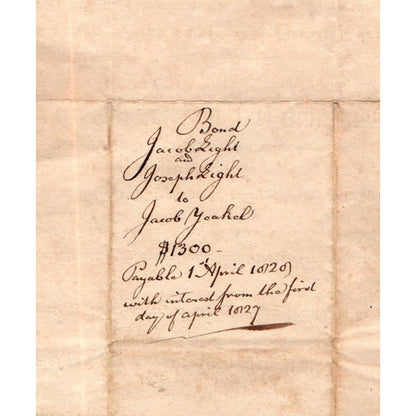 Bond
Jacob Light
and
Joseph Light
to
Jacob Yeakel
$1300 -
Payable 1st April 1828
with interest from the first
day of april 1827